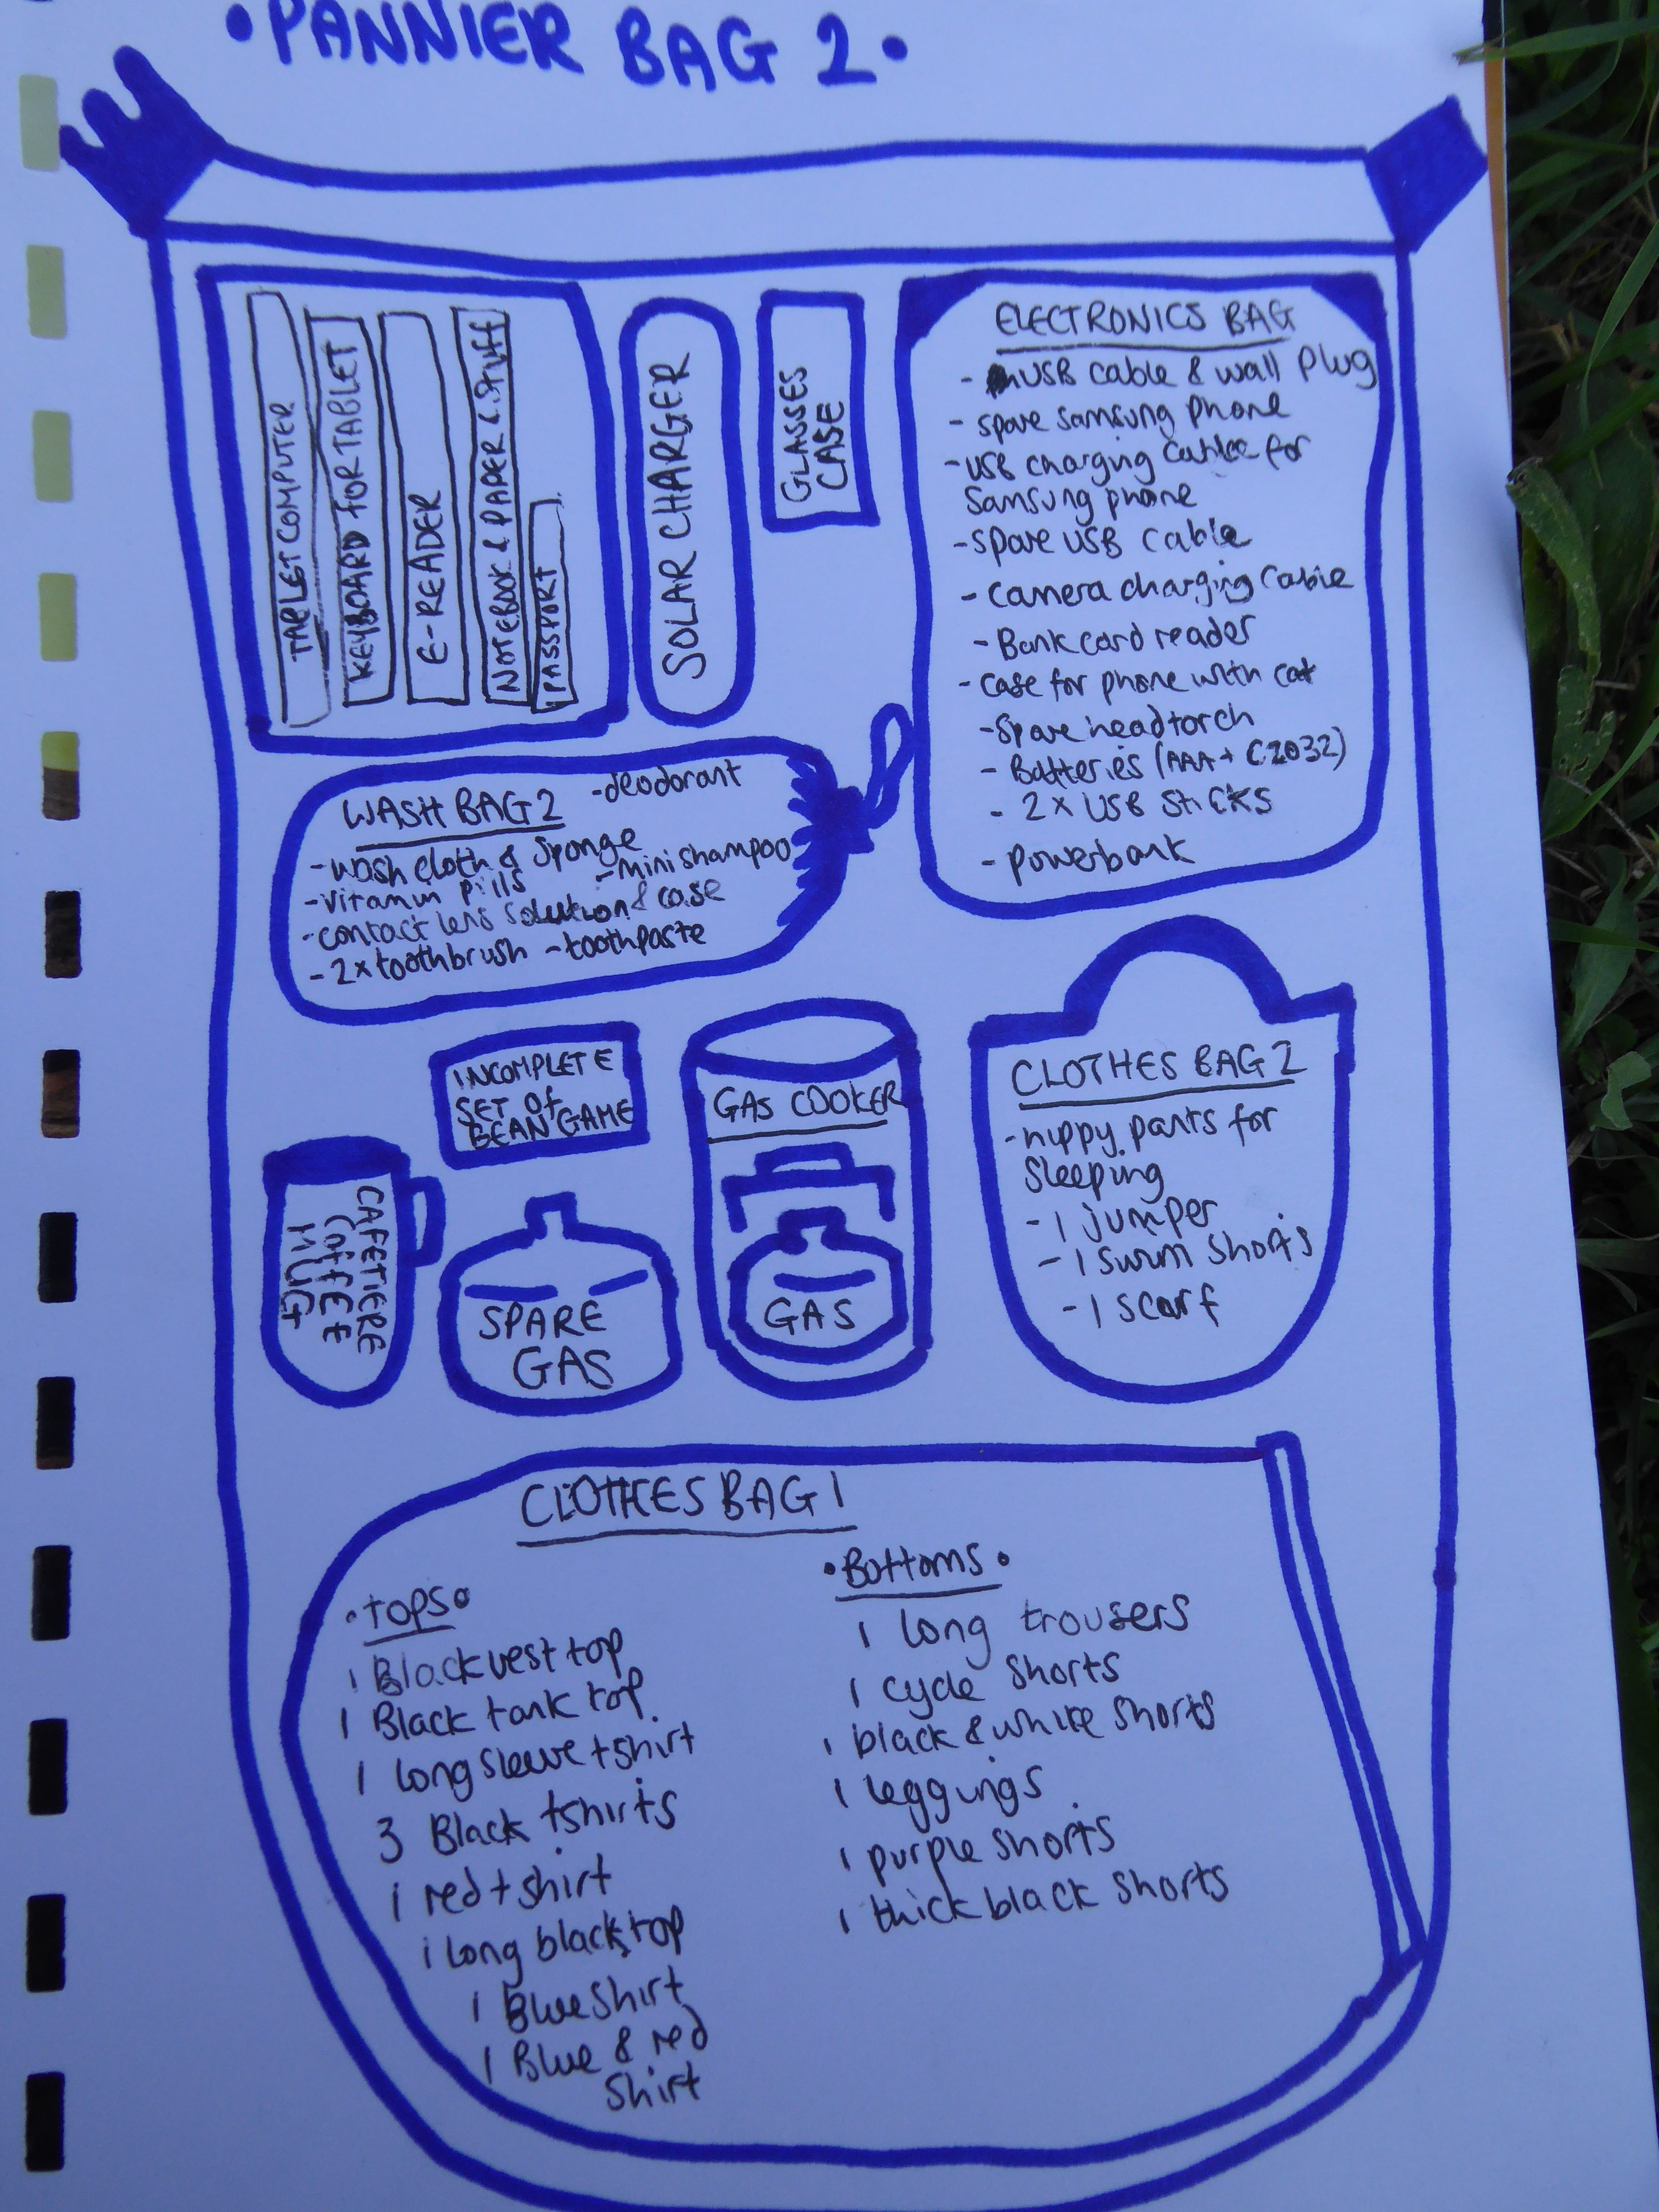 •PANNIER BAG 2•
TABLET COMPUTER
KEYBOARD FOR TABLET
E-READER
NOTEBOOK & PAPER & Stuff
PASSPORT
SOLAR CHARGER
GLASSES
CASE
ELECTRONICS BAG
- USB cable & wall plug
- spare samsung phone
- USB charging cable for
Samsung phone
- spare USB cable
- camera charging cable
- Bank card reader
- case for phone with cat
- Spare headtorch
- Batteries (AAA + C2032)
- 2 x USB STICKS
- powerbank
WASH BAG 2
- deodorant
- wash cloth & sponge
- mini shampoo
- vitamin pills
- contact lens solution & case
- 2x toothbrush - toothpaste
INCOMPLETE
SET OF
BEAN GAME
CAFETIERE
COFFEE
MUG
SPARE
GAS
GAS COOKER
GAS
CLOTHES BAG 2
- hippy pants for
sleeping
- 1 jumper
- 1 swim shorts
- 1 scarf
CLOTHES BAG 1
•TOPS•
1 Black vest top
1 Black tank top
1 long sleeve tshirt
3 Black tshirts
1 red tshirt
1 long black top
1 Blue Shirt
1 Blue & red
shirt
•Bottoms•
1 long trousers
1 cycle shorts
1 black & white shorts
1 leggings
1 purple shorts
1 thick black shorts